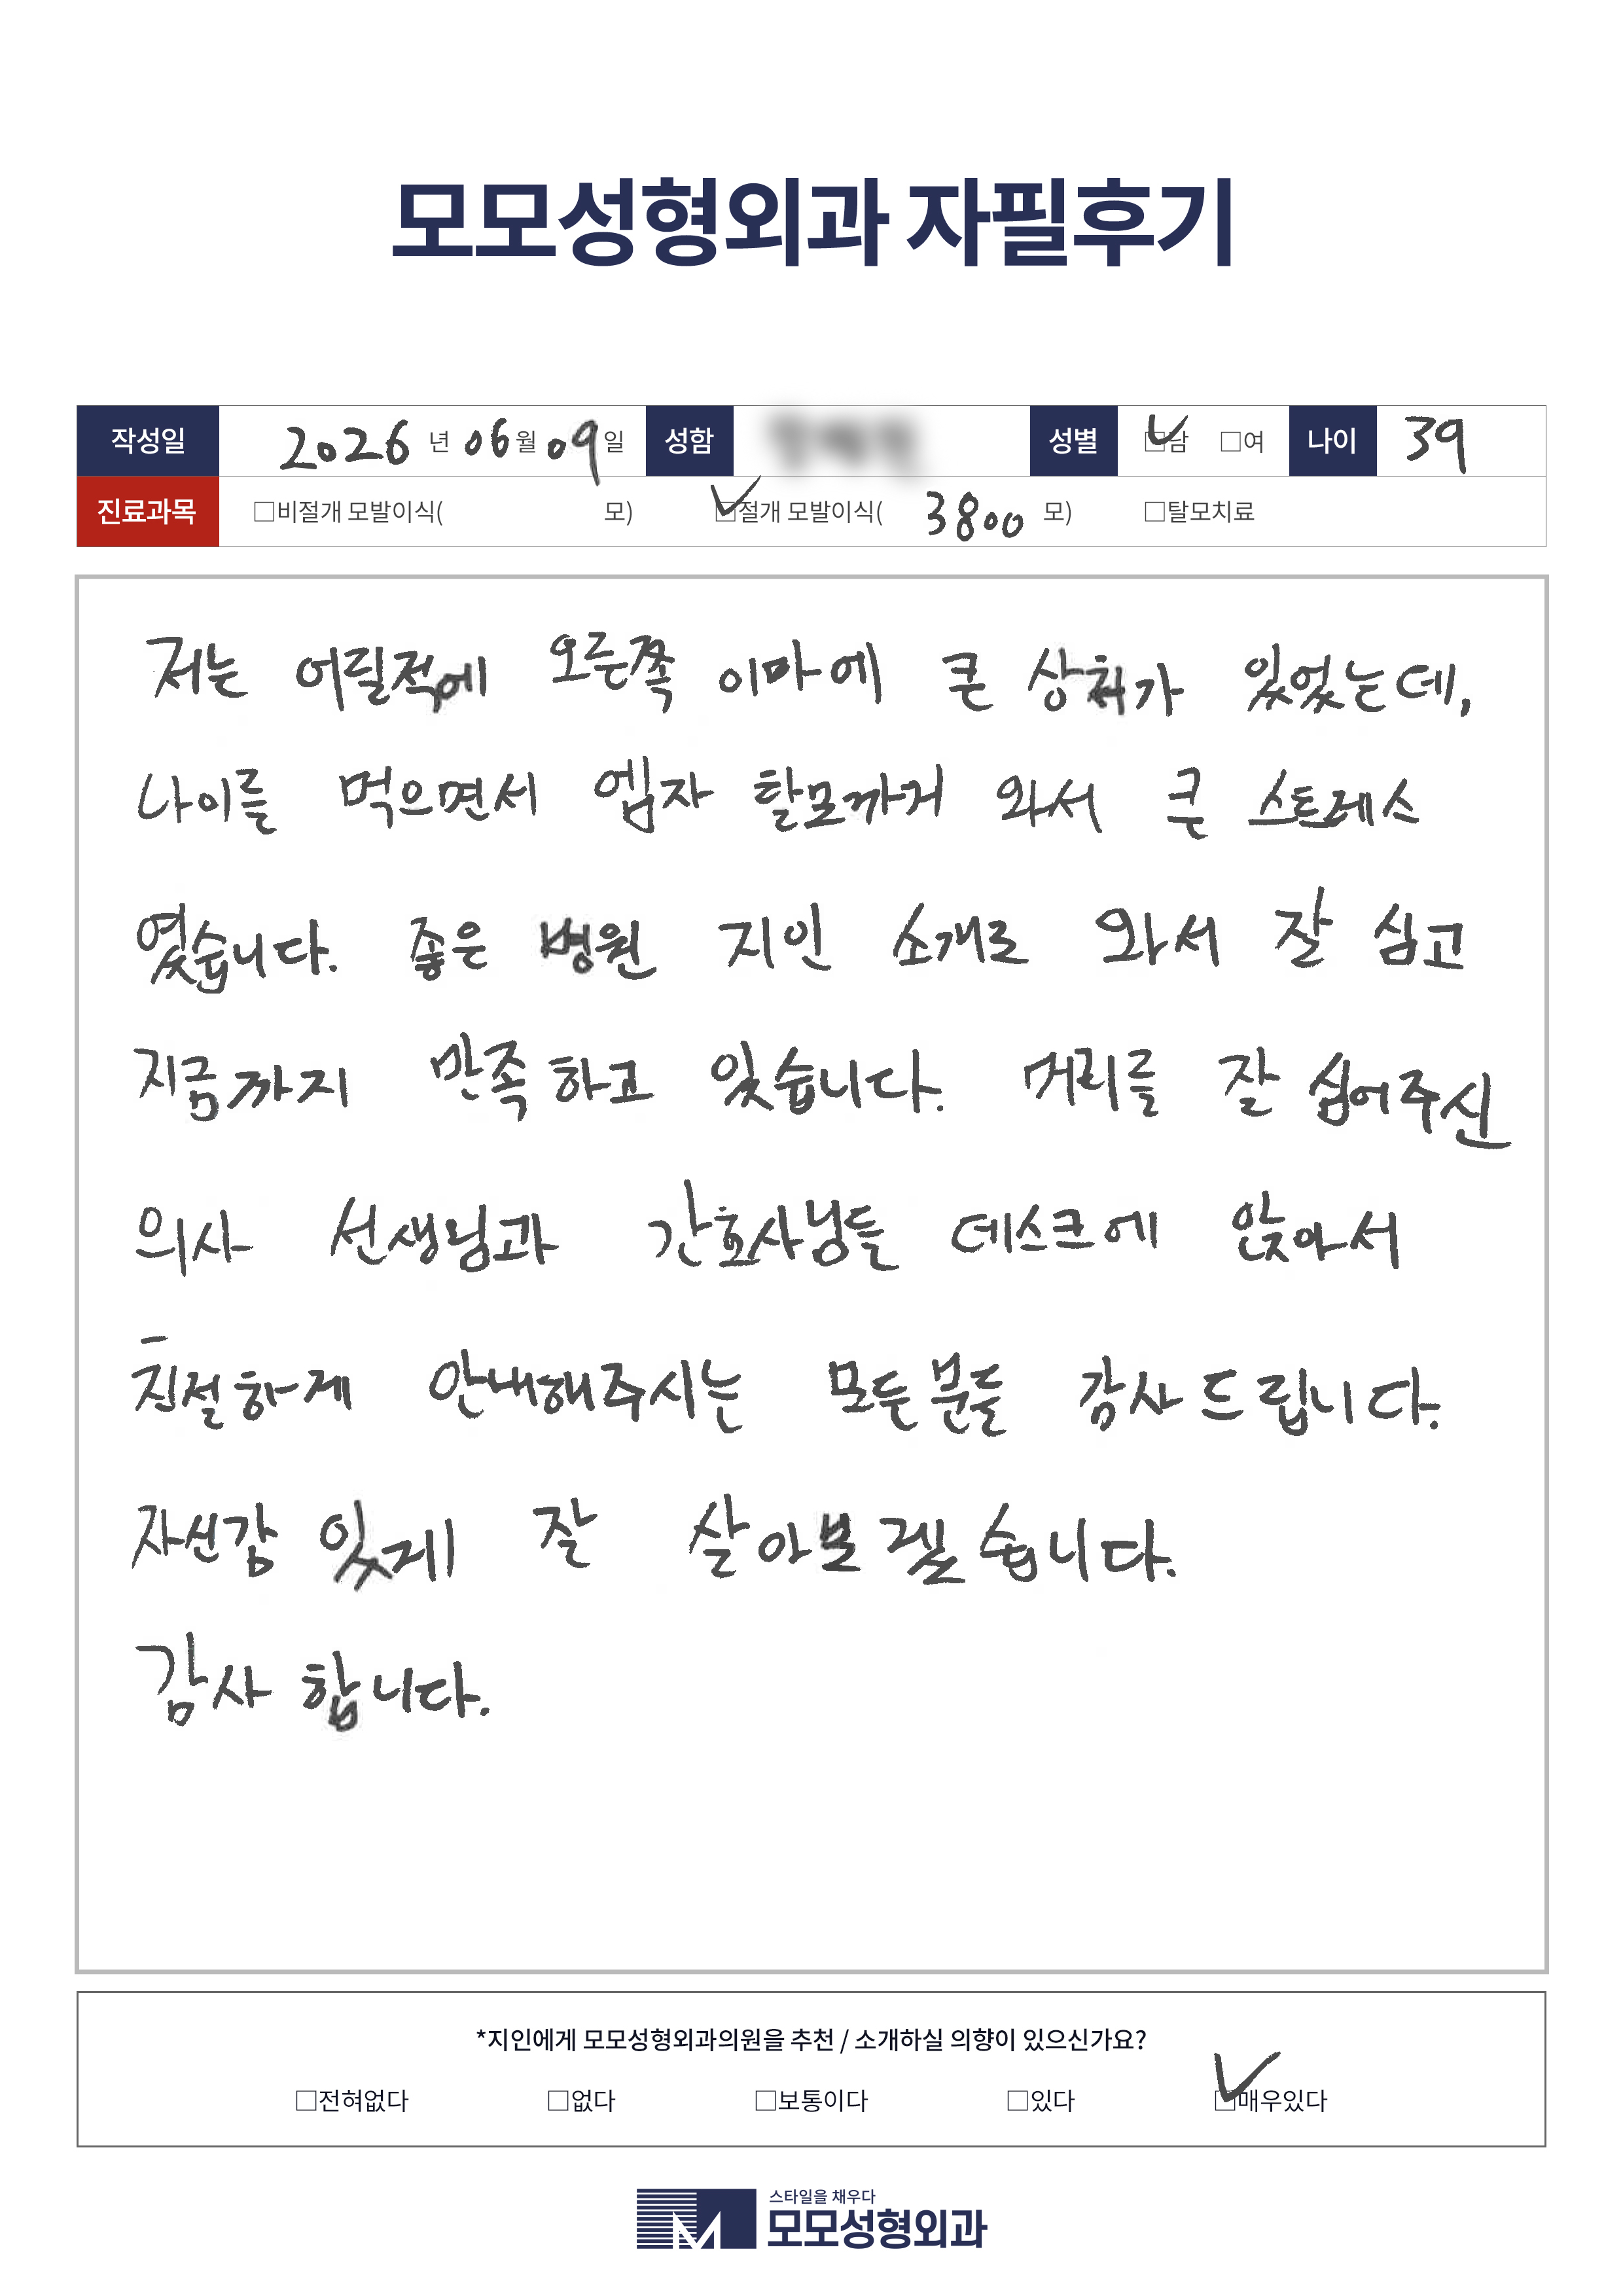 모모성형외과 자필후기
작성일 2026 년 06 월 09 일 성함 성별 ☑남 □여 나이 39
진료과목 □비절개 모발이식( 모) ☑절개 모발이식( 3800 모) □탈모치료
저는 어릴적에 오른쪽 이마에 큰 상처가 있었는데,
나이를 먹으면서 엠자 탈모까지 와서 큰 스트레스
였습니다. 좋은 병원 지인 소개로 와서 잘 심고
지금까지 만족하고 있습니다. 머리를 잘 심어주신
의사 선생님과 간호사님들 데스크에 앉아서
친절하게 안내해주시는 모든분들 감사드립니다.
자신감 있게 잘 살아보겠습니다.
감사합니다.
*지인에게 모모성형외과의원을 추천 / 소개하실 의향이 있으신가요?
□전혀없다 □없다 □보통이다 □있다 ☑매우있다
스타일을 채우다
모모성형외과